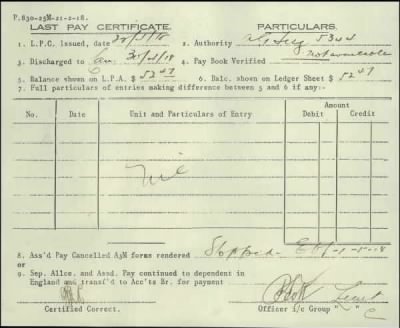 P.830-25M-21-2-18.
LAST PAY CERTIFICATE. PARTICULARS.
1. L.P.C. Issued, date 2. Authority
3. Discharged to 4. Pay Book Verified not available
5. Balance shown on L.P.A. $ 5247 6. Balc. shown on Ledger Sheet $ 5247
7. Full particulars of entries making difference between 5 and 6 if any:-
No. Date Unit and Particulars of Entry Amount
Debit Credit
Nil
8. Ass'd Pay Cancelled A3M forms rendered Stopped
or
9. Sep. Allce. and Assd. Pay continued to dependent in
England and transf'd to Acc'ts Br. for payment
Lieut
Certified Correct. Officer i/c Group " C "